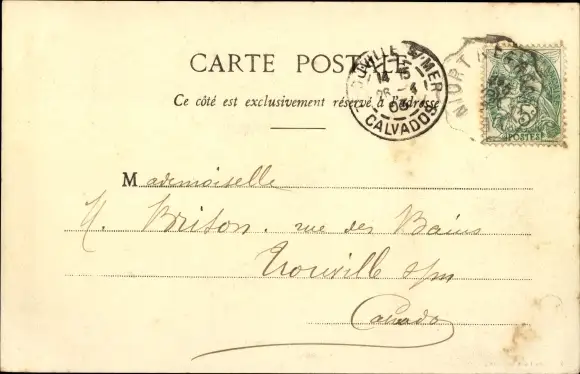 CARTE POSTALE
Ce côté est exclusivement réservé à l'adresse
OUVILLE S/MER
14 15
26 4
03
CALVADOS
NIORT
POSTES
Mademoiselle
M. Brison. rue des Bains
Trouville s/m
Calvados